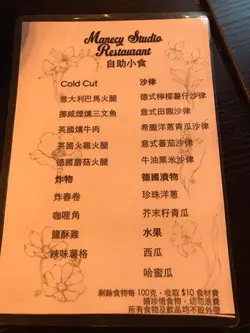 Manecy Studio
Restaurant
自助小食
Cold Cut
意大利巴馬火腿
挪威煙燻三文魚
英國燔牛肉
英國火雞火腿
德國蘑菇火腿
炸物
炸春卷
咖喱角
鹽酥雞
辣味薯格
沙律
德式檸檬薯仔沙律
意式田園沙律
希臘洋蔥青瓜沙律
意式蕃茄沙律
牛油粟米沙律
德國漬物
珍珠洋蔥
芥末籽青瓜
水果
西瓜
哈蜜瓜
剩餘食物每 100克，收取 $10 食材費
請珍惜食物，切勿浪費
所有食物及飲品均不設外帶